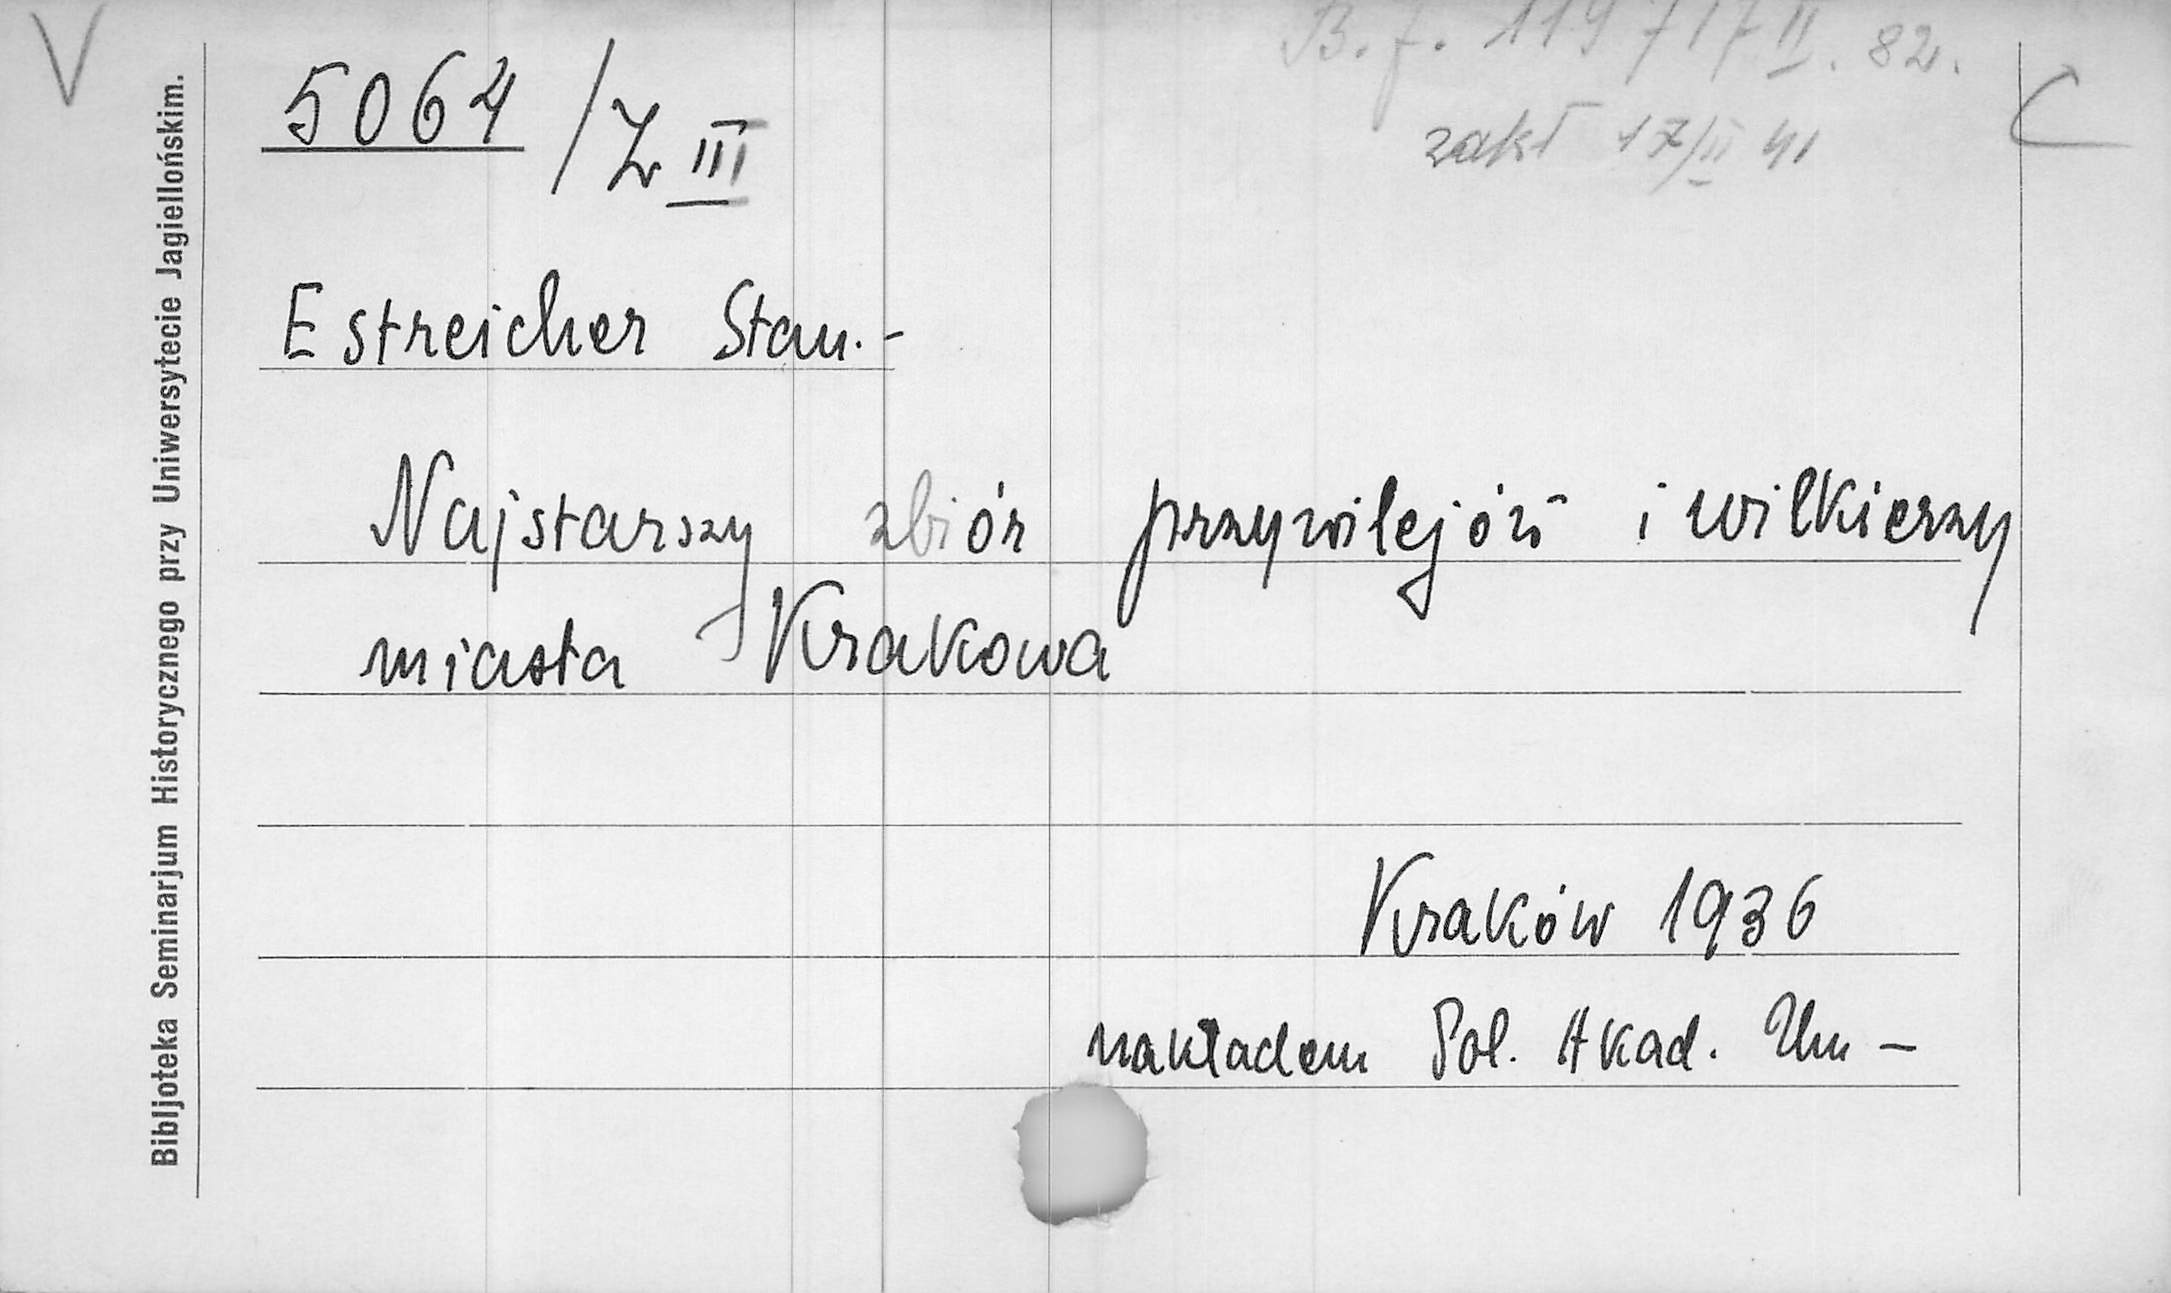 V
B. f. 119 / 17 II. 82.
C
5064 / Z III
zakł 17/II 41
Estreicher Stan.-
Najstarszy zbiór przywilejów i wilkierzy
miasta Krakowa
Kraków 1936
nakładem Pol. Akad. Um -
Bibljoteka Seminarjum Historycznego przy Uniwersytecie Jagiellońskim.